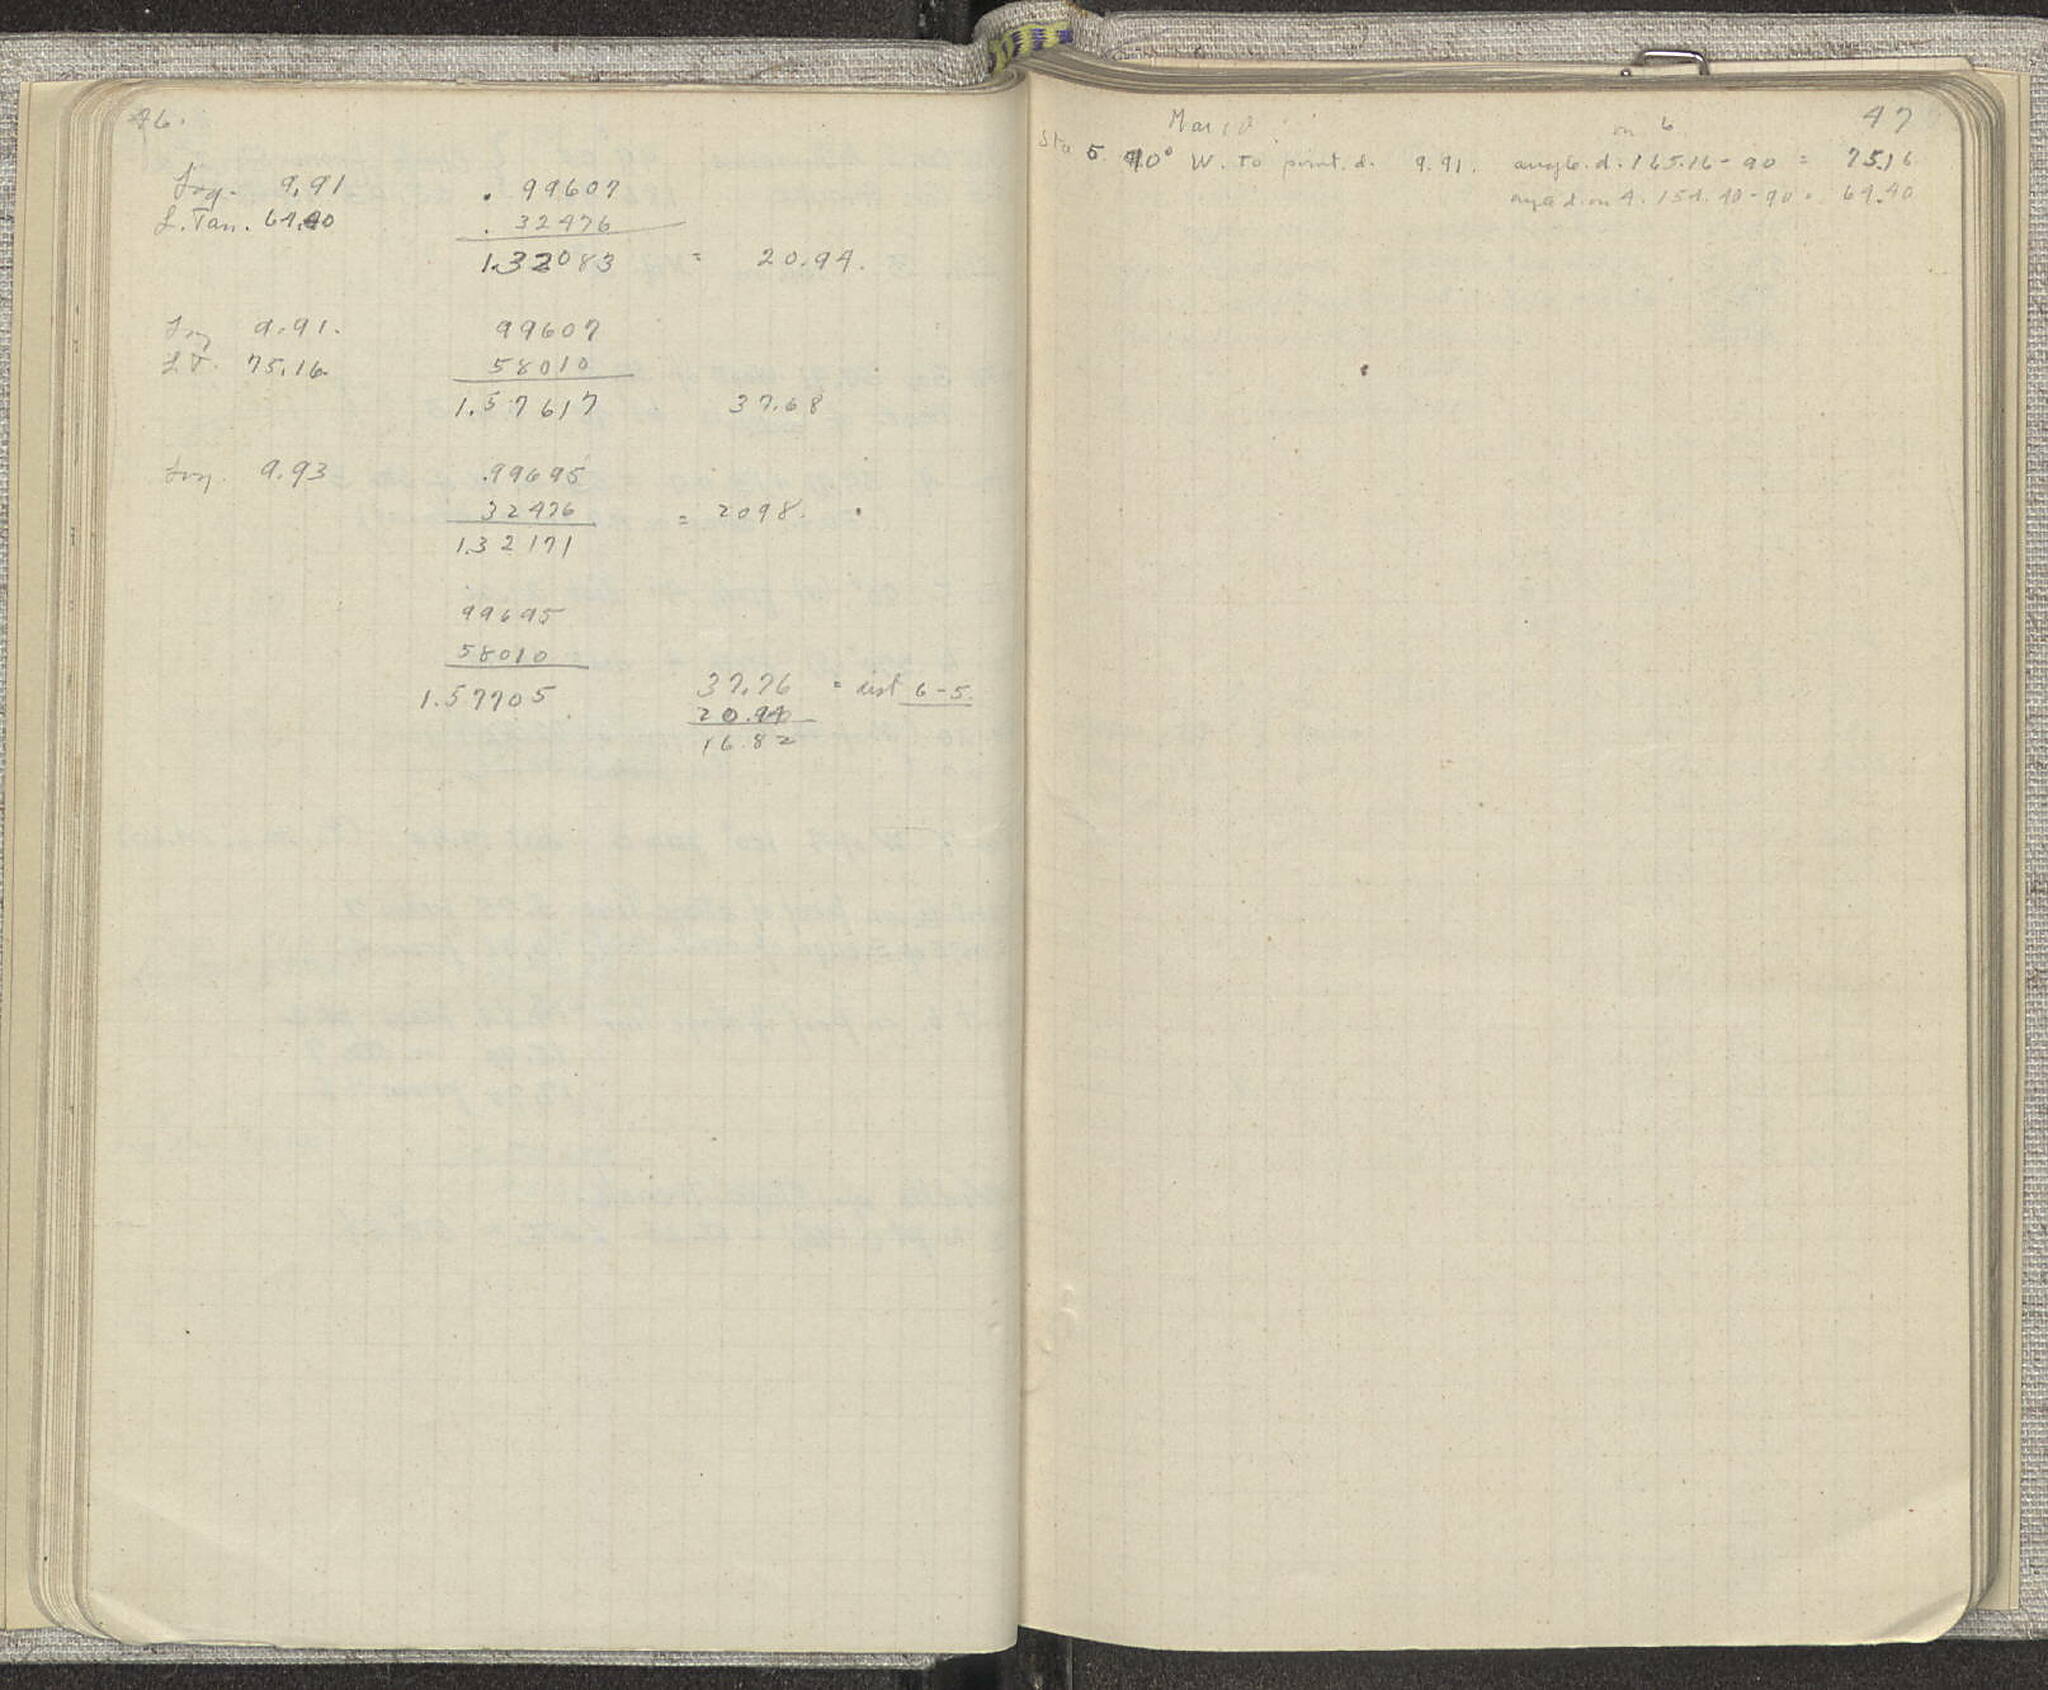 46.
Log. 9.91 . 99607
L. Tan. 64.40 . 32476
1.32083 = 20.94.
Log 9.91. 99607
L T. 75.16 58010
1.57617 37.68
Log. 9.93 .99695
32476 = 2098.
1.32171
99695
58010
1.57705 37.76 = dist 6-5.
20.94
16.82
47
March
on 6
Sta 5. 90° W. to point. d. 9.91. angle. d. 165.16 - 90 = 75.16
angle d. on 4. 154.40 - 90 = 64.40